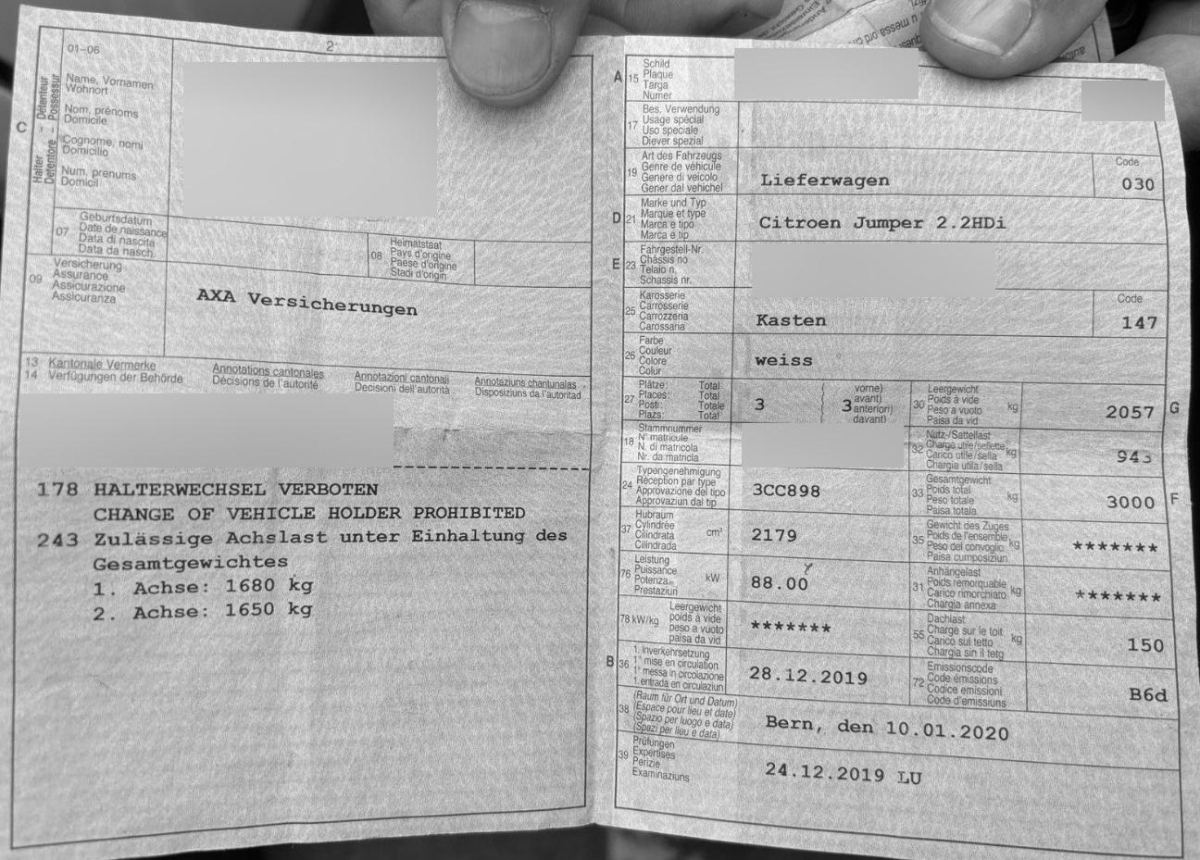 2
01-06
Name, Vornamen
Wohnort
Nom, prénoms
Domicile
Cognome, nomi
Domicilio
Num, prenums
Domicil
C
Halter - Détenteur
Detentore - Possessur
07
Geburtsdatum
Date de naissance
Data di nascita
Data da nasch.
08
Heimatstaat
Pays d'origine
Paese d'origine
Stadi d'origin
09
Versicherung
Assurance
Assicurazione
Assicuranza
AXA Versicherungen
13 Kantonale Vermerke
14 Verfügungen der Behörde
Annotations cantonales
Décisions de l'autorité
Annotazioni cantonali
Decisioni dell'autorità
Annotaziuns chantunalas
Disposiziuns da l'autoritad
178 HALTERWECHSEL VERBOTEN
CHANGE OF VEHICLE HOLDER PROHIBITED
243 Zulässige Achslast unter Einhaltung des
Gesamtgewichtes
1. Achse: 1680 kg
2. Achse: 1650 kg
A 15
Schild
Plaque
Targa
Numer
17
Bes. Verwendung
Usage spécial
Uso speciale
Diever spezial
19
Art des Fahrzeugs
Genre de véhicule
Genere di veicolo
Gener dal vehichel
Lieferwagen
Code
030
D 21
Marke und Typ
Marque et type
Marca e tipo
Marca e tip
Citroen Jumper 2.2HDi
E 23
Fahrgestell-Nr.
Châssis no
Telaio n.
Schassis nr.
25
Karosserie
Carrosserie
Carrozzeria
Carossaria
Kasten
Code
147
26
Farbe
Couleur
Colore
Colur
weiss
27
Plätze: Total
Places: Total
Posti: Totale
Plazs: Total
3
3
vorne)
avant)
anteriori)
davant)
30
Leergewicht
Poids à vide
Peso a vuoto
Paisa da vid
kg
2057
G
18
Stammnummer
N° matricule
N. di matricola
Nr. da matricla
32
Nutz-/Sattellast
Charge utile/sellette
Carico utile/sella
Chargia utila/sella
kg
943
24
Typengenehmigung
Réception par type
Approvazione del tipo
Approvaziun dal tip
3CC898
33
Gesamtgewicht
Poids total
Peso totale
Paisa totala
kg
3000
F
37
Hubraum
Cylindrée
Cilindrata
Cilindrada
cm³
2179
35
Gewicht des Zuges
Poids de l'ensemble
Peso del convoglio
Paisa cumposiziun
kg
*******
76
Leistung
Puissance
Potenza
Prestaziun
kW
88.00
31
Anhängelast
Poids remorquable
Carico rimorchiato
Chargia annexa
kg
*******
78 kW/kg
Leergewicht
poids à vide
peso a vuoto
paisa da vid
*******
55
Dachlast
Charge sur le toit
Carico sul tetto
Chargia sin il tetg
kg
150
B 36
1. Inverkehrsetzung
1re mise en circulation
1a messa in circolazione
1. entrada en circulaziun
28.12.2019
72
Emissionscode
Code émissions
Codice emissioni
Code d'emissiuns
B6d
38
(Raum für Ort und Datum)
(Espace pour lieu et date)
(Spazio per luogo e data)
(Spazi per lieu e data)
Bern, den 10.01.2020
39
Prüfungen
Expertises
Perizie
Examinaziuns
24.12.2019 LU